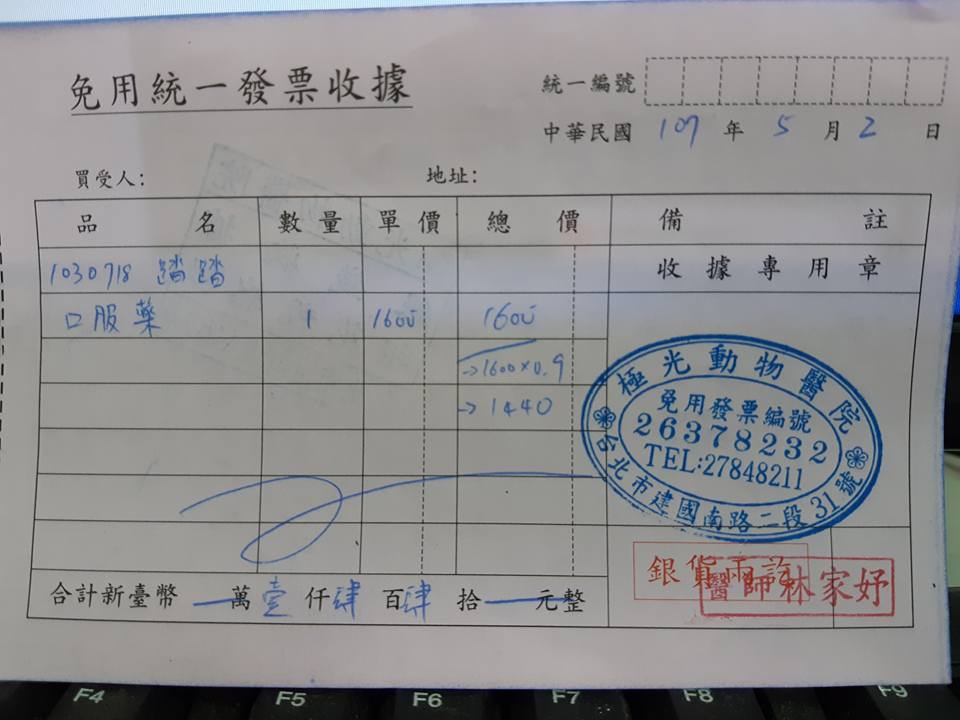 免用統一發票收據
統一編號
中華民國 107 年 5 月 2 日
買受人： 地址：
品名 數量 單價 總價 備註
1030718 踏踏 收據專用章
口服藥 1 1600 1600
→1600×0.9
→1440
極光動物醫院
免用發票編號
26378232
TEL:27848211
台北市建國南路二段31號
合計新臺幣 一萬壹仟肆百肆拾一元整
銀貨兩訖
醫師林家妤
F4 F5 F6 F7 F8 F9